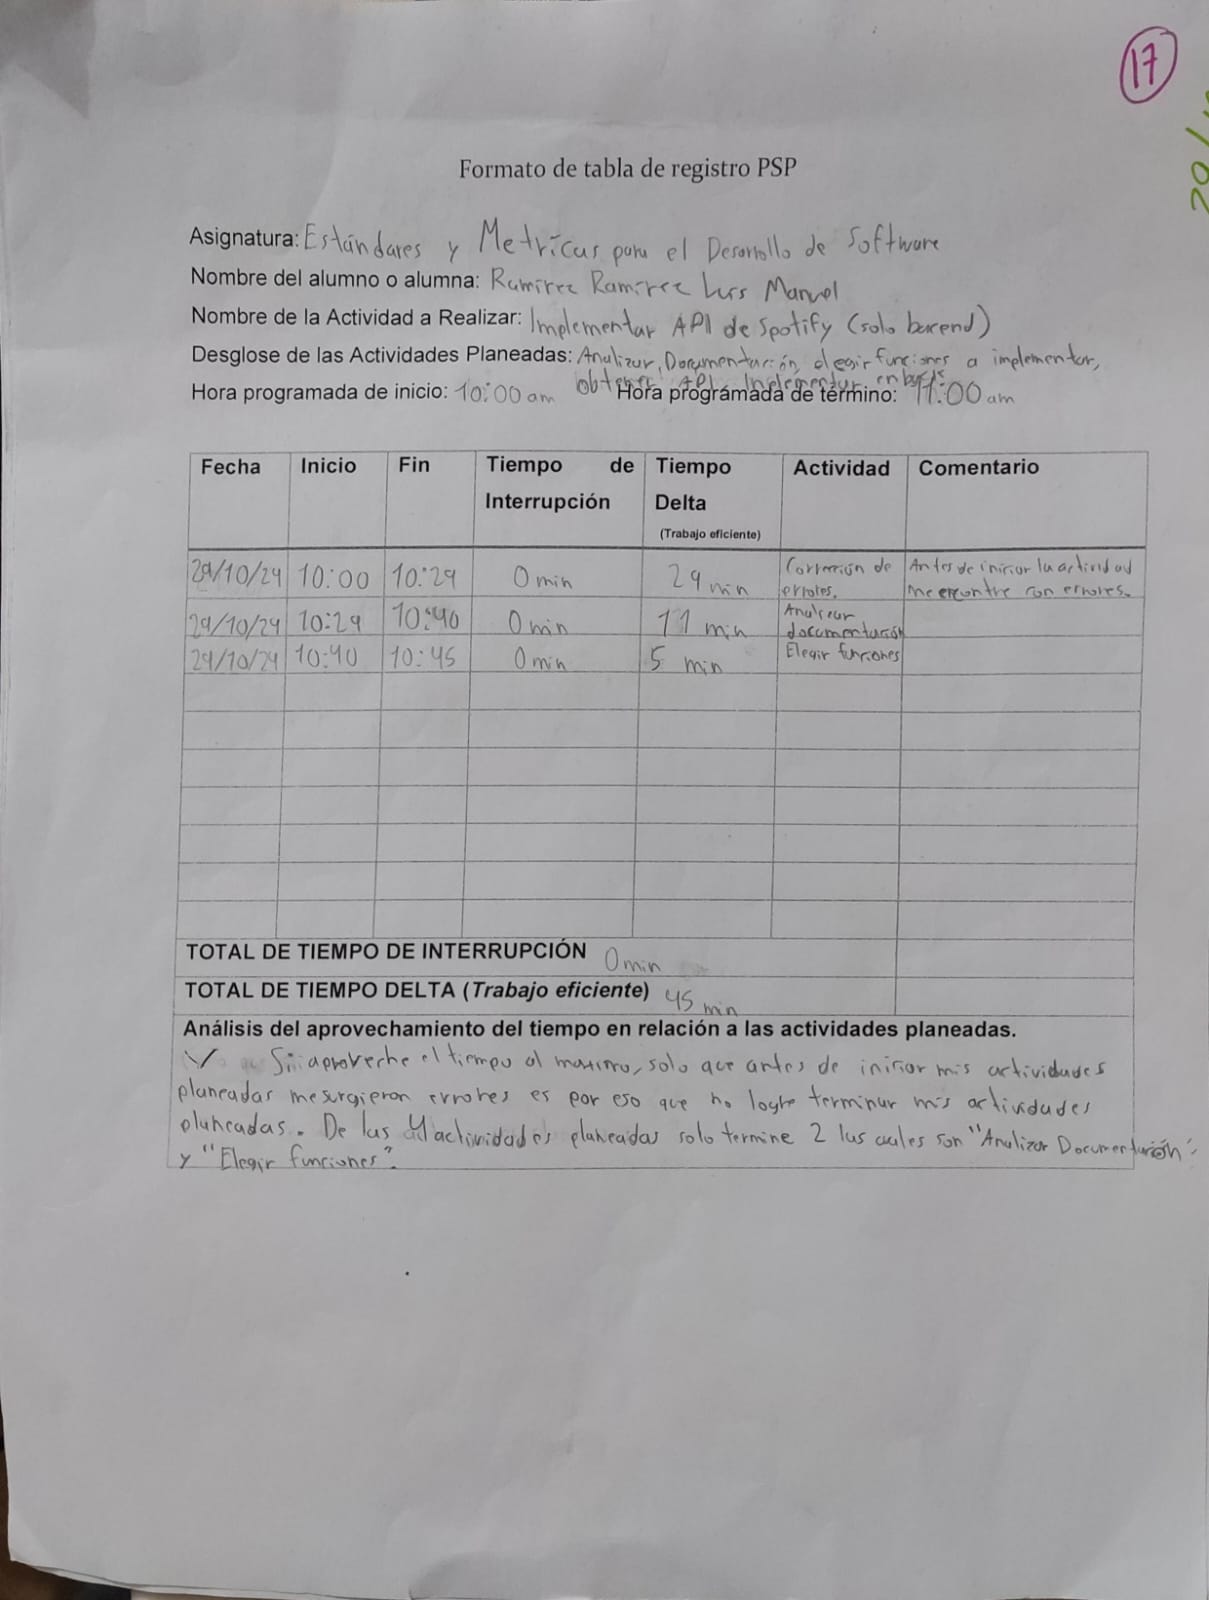 17
29/1
Formato de tabla de registro PSP
Asignatura: Estándares y Metrícas para el Desarrollo de Software
Nombre del alumno o alumna: Ramírez Ramírez Luis Manuel
Nombre de la Actividad a Realizar: Implementar API de Spotify (solo bacend)
Desglose de las Actividades Planeadas: Analizar, Documentación, elegir funciones a implementar,
obtener API, Inplementar en
Hora programada de inicio: 10:00 am Hora programada de término: 11:00 am
Fecha Inicio Fin Tiempo de Interrupción Tiempo Delta (Trabajo eficiente) Actividad Comentario
29/10/24 10:00 10:29 0 min 29 min Corrección de errores. Antes de iniciar la actividad me encontre con errores.
29/10/24 10:29 10:40 0 min 11 min Analizar documentación
29/10/24 10:40 10:45 0 min 5 min Elegir funciones
TOTAL DE TIEMPO DE INTERRUPCIÓN 0 min
TOTAL DE TIEMPO DELTA (Trabajo eficiente) 45 min
Análisis del aprovechamiento del tiempo en relación a las actividades planeadas.
Si aproveche el tiempo al maximo, solo que antes de iniciar mis actividades
planeadas me surgieron errores es por eso que no logre terminar mis actividades
planeadas. De las 4 actividades planeadas solo termine 2 las cuales son "Analizar Documentación"
y "Elegir funciones".